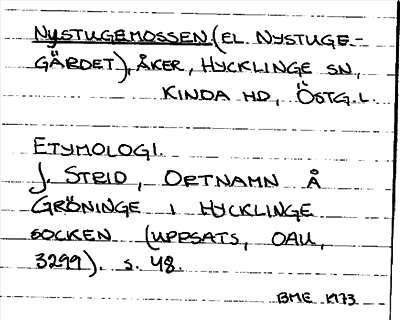 NYSTUGEMOSSEN (EL. NYSTUGE-
GÄRDET), ÅKER, HYCKLINGE SN,
KINDA HD, ÖSTG. L.
ETYMOLOGI.
J. STRID, ORTNAMN Å
GRÖNINGE I HYCKLINGE
SOCKEN (UPPSATS, OAU,
3299). s. 48.
BME 1973